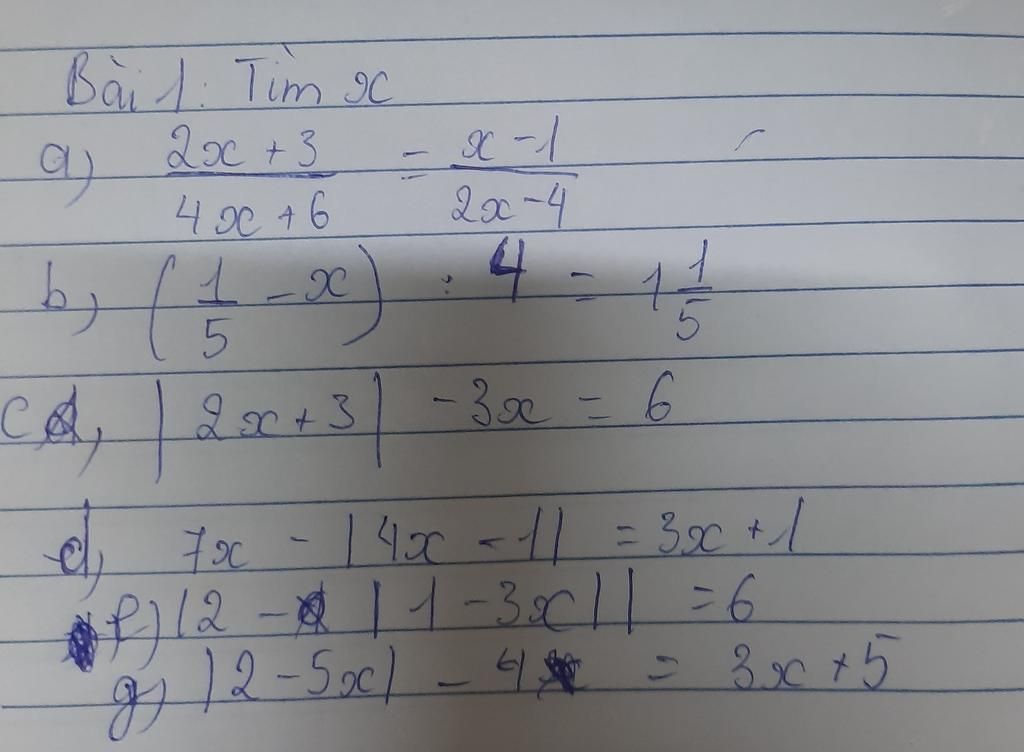 Bài 1: Tìm x
a) \frac{2x+3}{4x+6} = \frac{x-1}{2x-4}
b) (\frac{1}{5} - x) : 4 = 1\frac{1}{5}
c, |2x+3| - 3x = 6
d) 7x - |4x-1| = 3x+1
f) |2 - |1-3x|| = 6
g) |2-5x| - 4 = 3x+5